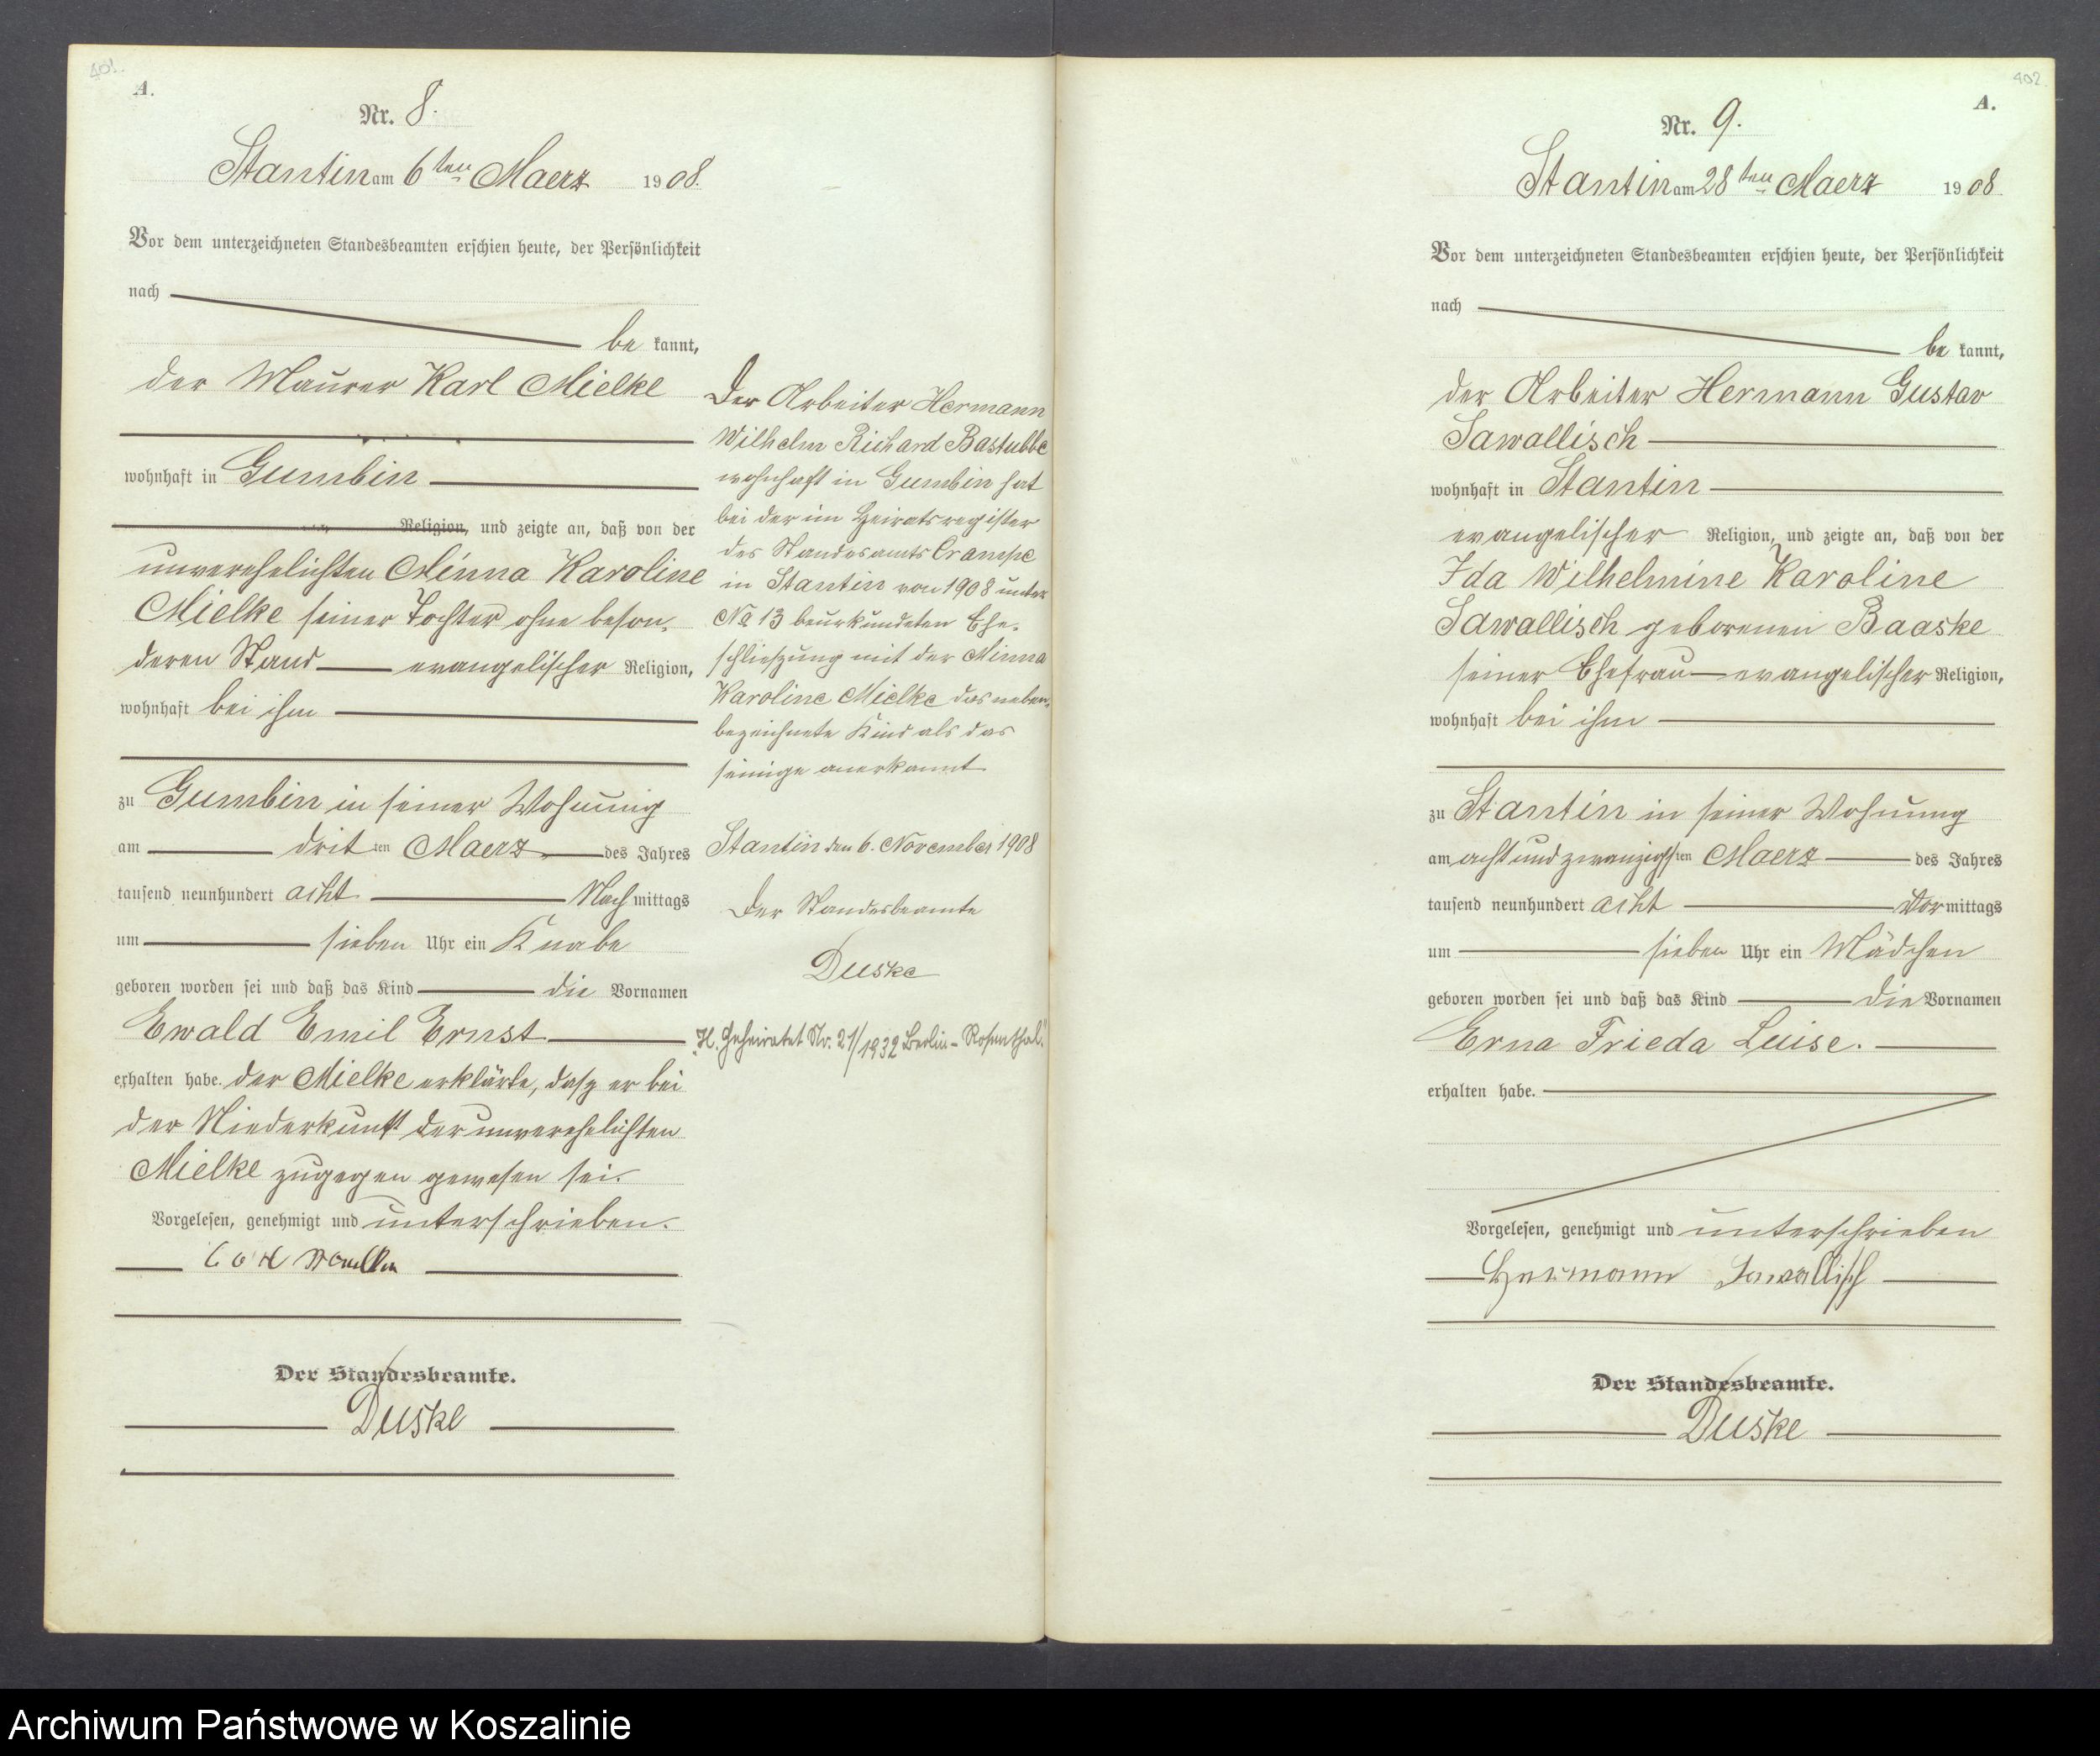 401.
A.
Nr. 8.
Stantin am 6ten Maerz 1908.
Vor dem unterzeichneten Standesbeamten erschien heute, der Persönlichkeit
nach
be kannt,
der Maurer Karl Mielke
wohnhaft in Gumbin
Religion, und zeigte an, daß von der
unverehelichten Minna Karoline
Mielke seiner Tochter ohne beson-
deren Stand evangelischer Religion,
wohnhaft bei ihm
zu Gumbin in seiner Wohnung
am dritten Maerz des Jahres
tausend neunhundert acht Nachmittags
um sieben Uhr ein Knabe
geboren worden sei und daß das Kind die Vornamen
Ewald Emil Ernst
erhalten habe. der Mielke erklärte, dasz er bei
der Niederkunft der unverehelichten
Mielke zugegen gewesen sei.
Vorgelesen, genehmigt und unterschrieben.
Der Standesbeamte.
Duske
Der Arbeiter Hermann
Wilhelm Richard Bastubbe
wohnhaft in Gumbin hat
bei der im Heiratsregister
des Standesamts Crampe
in Stantin von 1908 unter
No 13 beurkundeten Ehe-
schlieszung mit der Minna
Karoline Mielke das neben-
bezeichnete Kind als das
seinige anerkannt
Stantin den 6. November 1908
Der Standesbeamte
Duske
"H. Geheiratet Nr. 21/1932 Berlin-Rosenthal."
402.
A.
Nr. 9.
Stantin am 28ten Maerz 1908.
Vor dem unterzeichneten Standesbeamten erschien heute, der Persönlichkeit
nach
be kannt,
der Arbeiter Hermann Gustav
Sawallisch
wohnhaft in Stantin
evangelischer Religion, und zeigte an, daß von der
Ida Wilhelmine Karoline
Sawallisch geborenen Baaske
seiner Ehefrau evangelischer Religion,
wohnhaft bei ihm
zu Stantin in seiner Wohnung
am acht und zwanzigsten Maerz des Jahres
tausend neunhundert acht Vormittags
um sieben Uhr ein Mädchen
geboren worden sei und daß das Kind die Vornamen
Erna Frieda Luise.
erhalten habe.
Vorgelesen, genehmigt und unterschrieben
Hermann Sawallisch
Der Standesbeamte.
Duske
Archiwum Państwowe w Koszalinie